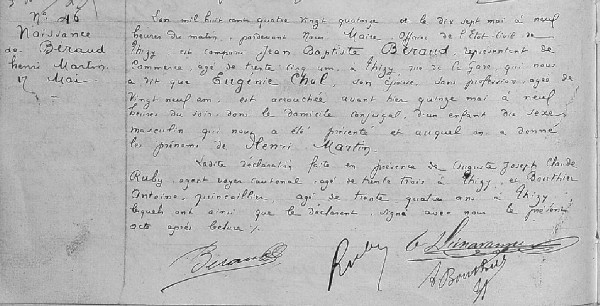 No 46
Naissance
de
Béraud
henri Martin
17
Mai
L'an mil huit cent quatre vingt quatorze et le dix sept mai à neuf
heures du matin, pardevant Nous Maire, Officier de l'Etat Civil de
Thizy est comparu Jean Baptiste Béraud, représentant de
commerce agé de trente cinq ans, à Thizy, rue de la Gare, qui nous
a dit que Eugénie Chol, son épouse, sans profession, agée de
vingt neuf ans, est accouchée avant hier quinze mai à neuf
heures du soir, dans le domicile conjugal, d'un enfant du sexe
masculin qui nous a été présenté et auquel on a donné
les prénoms de Henri Martin
Ladite déclaration faite en présence de Auguste Joseph Claude
Ruby, agent voyer cantonal, agé de trente trois à Thizy, et Bouthier
Antoine, quincaillier, agé de trente quatre ans à Thizy
lesquels ont ainsi que le déclarant, signé avec nous le présent
acte après lecture
Béraud
Ruby
A Bouthier